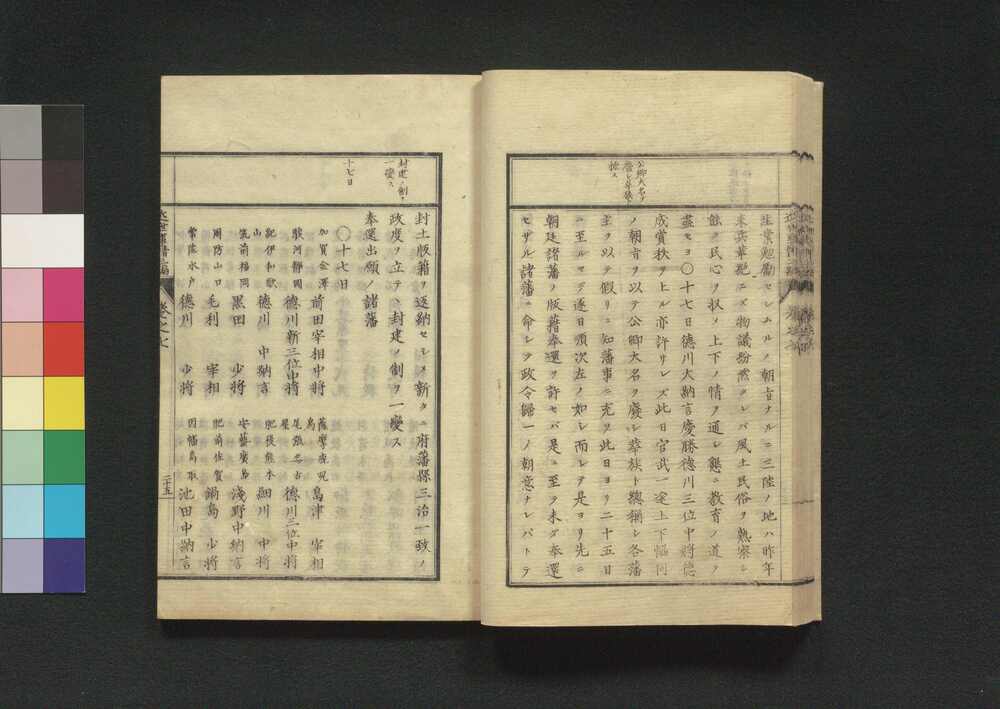 公卿大名ヲ
廢シ華族ト
稱ス
生業勉勵セシムルノ朝旨ナルニ三陸ノ地ハ昨年
來兵革艱ニズ物議紛然タレバ風土民俗ヲ熟察シ
餘ク民心ヲ収メ上下ノ情ヲ通シ懇ニ教育ノ道ヲ
盡セヨ〇十七日德川大納言慶勝德川三位中將德
成賞秩ヲ上ル亦許サレズ此日官武一途上下協同
ノ朝旨ヲ以テ公卿大名ヲ廢シ華族ト總稱シ各藩
主ヲ以テ假リニ知藩事ニ充ツ此日ヨリ二十五日
ニ至ルマデ逐日順次左ノ如シ而シテ是ヨリ先ニ
朝廷諸藩ノ版籍奉還ヲ許セバ是ニ至ラ未ダ奉還
セザル諸藩ニ命シテ政令歸一ノ朝意ナレバトテ
封建ノ制ヲ
一變ス
十七日
封土版籍ヲ返納セシメ新タニ府藩縣三治一致ノ
政度ヲ立テ、封建ノ制ヲ一變ス
〇十七日
奉還出願ノ諸藩
加賀金澤 前田宰相中將 薩摩鹿児島 島津 宰相
駿河靜岡 德川新三位中將 尾張名古屋 德川三位中將
紀伊和歌山 德川 中納言 肥後熊本 細川 中將
筑前福岡 黒田 少將 安藝廣島 淺野中納言
周防山口 毛利 宰相 肥前佐賀 鍋島 少將
常陸水戸 德川 少將 因幡鳥取 池田中納言
卷之七
三十五